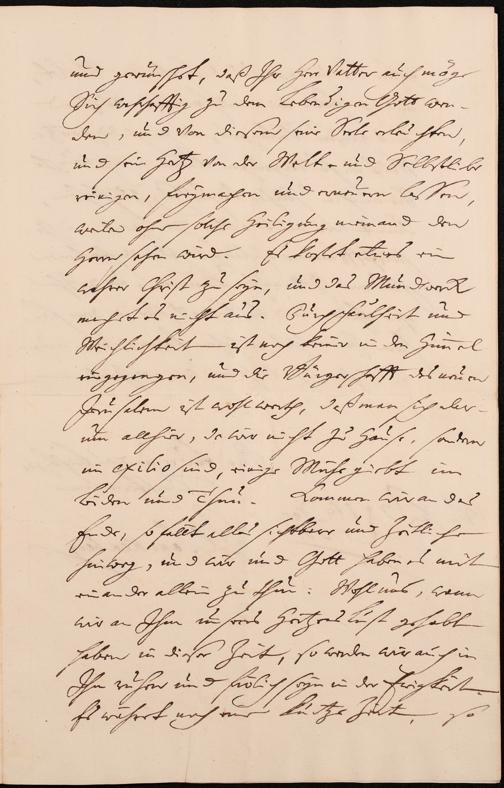 und gewünschet, daß Ihr Herr Vatter auch möge
Sich wahrhafftig zu dem Lebendigen Gott wen-
den, und von diesem seine Seele erleuchten,
und sein Hertz von der Welt- und Selbstliebe
reinigen, freymachen und erneuern lassen,
weilen ohne solche Heiligung niemand den
Herrn sehen wird. Es kostet etwas ein
wahrer Christ zu seyn, und das Mundwerck
machet es nicht aus. Durch Faulheit und
Weichlichkeit ist noch keiner in den Himmel
eingegangen, und die Bürgerschafft des neuen
Jerusalems ist wohl werth, daß man sich
um allhier, da wir nicht zu Hause, sondern
im exilio sind, einige Mühe giebt im
Leiden und Thun. Kommen wir an das
Ende, so fällt alles sichtbare und Zeitliche
hinweg, und wir und Gott haben es mit
einander allein zu thun: Wohl uns, wann
wir an Ihm unsers Hertzens Lust gehabt
haben in dieser Zeit, so werden wir auch in
Ihm ruhen und frölich seyn in der Ewigkeit.
Es währet noch eine kurtze Zeit, so